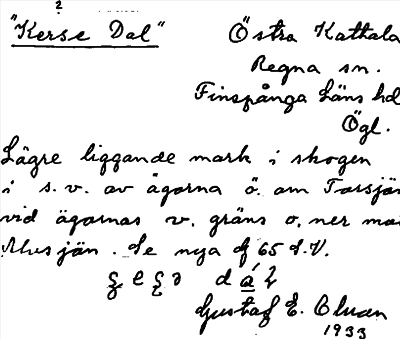 "Kerse Dal"
Östra Kathala
Regna sn.
Finspånga Läns hd
Ögl.
Lägre liggande mark i skogen
i s.v. av ägorna ö. om Torsjön
vid ägornas v. gräns o. ner mot
de nya 65 S.V.
Gustaf E.
1933